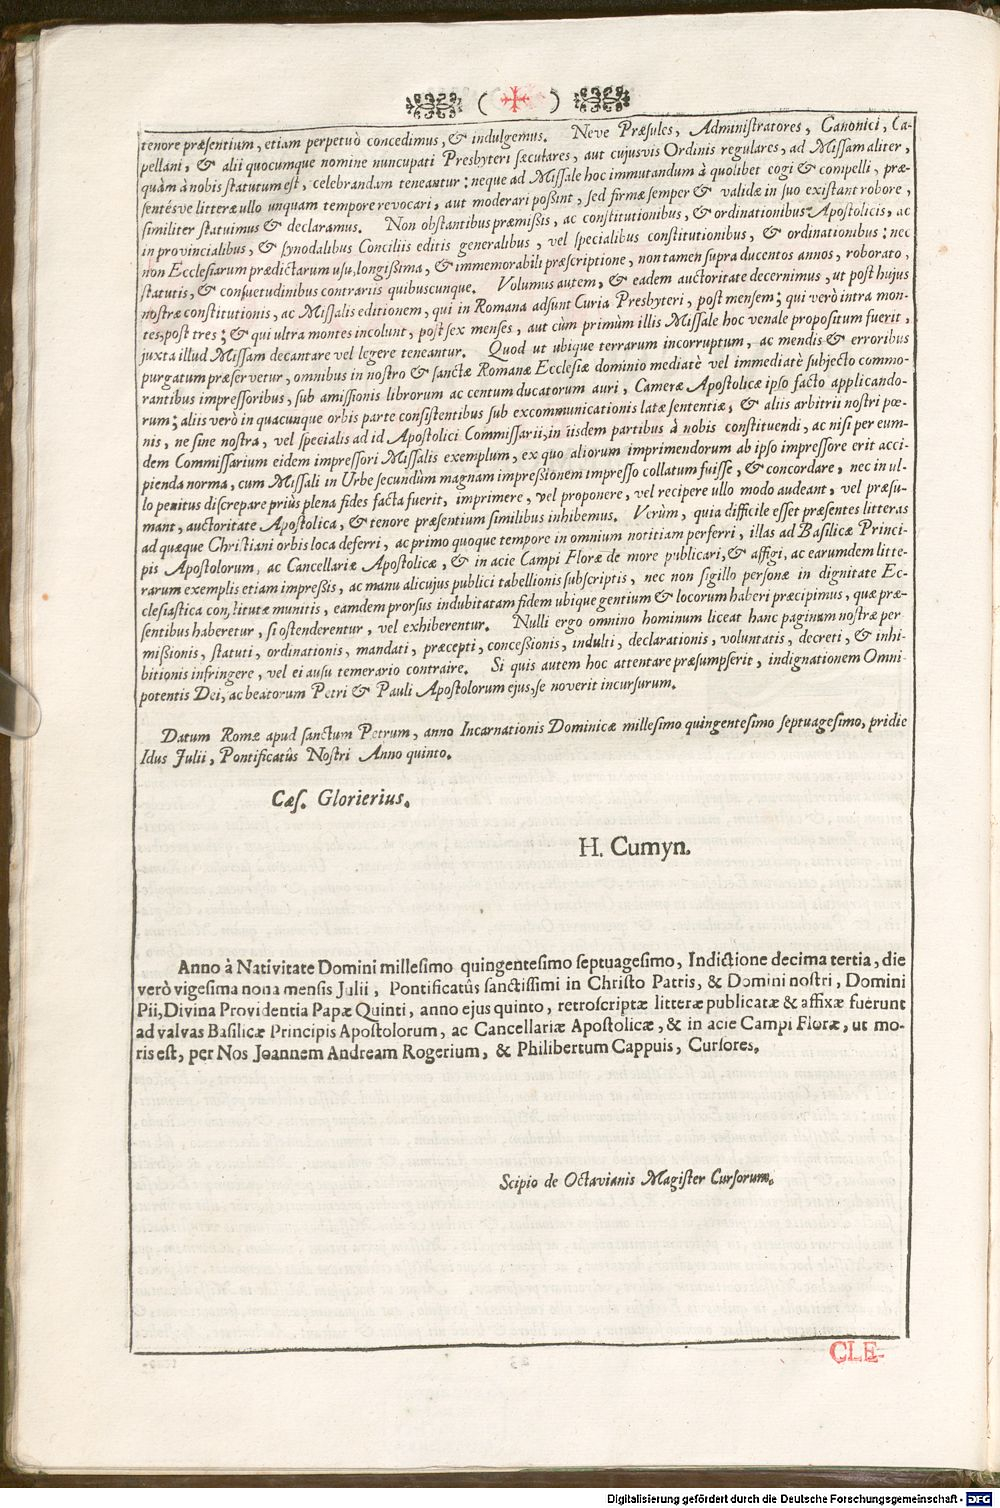 tenore præsentium, etiam perpetuò concedimus, & indulgemus. Neve Præsules, Administratores, Canonici, Ca-
pellani, & alii quocumque nomine nuncupati Presbyteri sæculares, aut cujusvis Ordinis regulares, ad Missam aliter,
quàm à nobis statutum est, celebrandam teneantur: neque ad Missale hoc immutandum à quolibet cogi & compelli, præ-
sentésve litteræ ullo unquam tempore revocari, aut moderari possint, sed firmæ semper & validæ in suo existant robore,
similiter statuimus & declaramus. Non obstantibus præmissis, ac constitutionibus, & ordinationibus Apostolicis, ac
in provincialibus, & synodalibus Conciliis editis generalibus, vel specialibus constitutionibus, & ordinationibus: nec
non Ecclesiarum prædictarum usu, longissima, & immemorabili præscriptione, non tamen supra ducentos annos, roborato,
statutis, & consuetudinibus contrariis quibuscunque. Volumus autem, & eadem auctoritate decernimus, ut post hujus
nostræ constitutionis, ac Missalis editionem, qui in Romana adsunt Curia Presbyteri, post mensem; qui verò intra mon-
tes, post tres; & qui ultra montes incolunt, post sex menses, aut cùm primùm illis Missale hoc venale propositum fuerit,
juxta illud Missam decantare vel legere teneantur. Quod ut ubique terrarum incorruptum, ac mendis & erroribus
purgatum præservetur, omnibus in nostro & sanctæ Romanæ Ecclesiæ dominio mediatè vel immediatè subjecto commo-
rantibus impressoribus, sub amissionis librorum ac centum ducatorum auri, Cameræ Apostolicæ ipso facto applicando-
rum; aliis verò in quacunque orbis parte consistentibus sub excommunicationis latæ sententiæ, & aliis arbitrii nostri pœ-
nis, ne sine nostra, vel specialis ad id Apostolici Commissarii, in iisdem partibus à nobis constituendi, ac nisi per eum-
dem Commissarium eidem impressori Missalis exemplum, ex quo aliorum imprimendorum ab ipso impressore erit acci-
pienda norma, cum Missali in Urbe secundùm magnam impressionem impresso collatum fuisse, & concordare, nec in ul-
lo penitus discrepare priùs plena fides facta fuerit, imprimere, vel proponere, vel recipere ullo modo audeant, vel præsu-
mant, auctoritate Apostolica, & tenore præsentium similibus inhibemus. Verùm, quia difficile esset præsentes litteras
ad quæque Christiani orbis loca deferri, ac primo quoque tempore in omnium notitiam perferri, illas ad Basilicæ Princi-
pis Apostolorum, ac Cancellariæ Apostolicæ, & in acie Campi Floræ de more publicari, & affigi, ac earumdem litte-
rarum exemplis etiam impressis, ac manu alicujus publici tabellionis subscriptis, nec non sigillo personæ in dignitate Ec-
clesiastica constitutæ munitis, eamdem prorsus indubitatam fidem ubique gentium & locorum haberi præcipimus, quæ præ-
sentibus haberetur, si ostenderentur, vel exhiberentur. Nulli ergo omnino hominum liceat hanc paginam nostræ per
missionis, statuti, ordinationis, mandati, præcepti, concessionis, indulti, declarationis, voluntatis, decreti, & inhi-
bitionis infringere, vel ei ausu temerario contraire. Si quis autem hoc attentare præsumpserit, indignationem Omni-
potentis Dei, ac beatorum Petri & Pauli Apostolorum ejus, se noverit incursurum.
Datum Romæ apud sanctum Petrum, anno Incarnationis Dominicæ millesimo quingentesimo septuagesimo, pridie
Idus Julii, Pontificatûs Nostri Anno quinto.
Cæs. Glorierius.
H. Cumyn.
Anno à Nativitate Domini millesimo quingentesimo septuagesimo, Indictione decima tertia, die
verò vigesima nona mensis Julii, Pontificatûs sanctissimi in Christo Patris, & Domini nostri, Domini
Pii, Divina Providentia Papæ Quinti, anno ejus quinto, retroscriptæ litteræ publicatæ & affixæ fuerunt
ad valvas Basilicæ Principis Apostolorum, ac Cancellariæ Apostolicæ, & in acie Campi Floræ, ut mo-
ris est, per Nos Joannem Andream Rogerium, & Philibertum Cappuis, Cursores.
Scipio de Octavianis Magister Cursorum.
CLE-
Digitalisierung gefördert durch die Deutsche Forschungsgemeinschaft - DFG